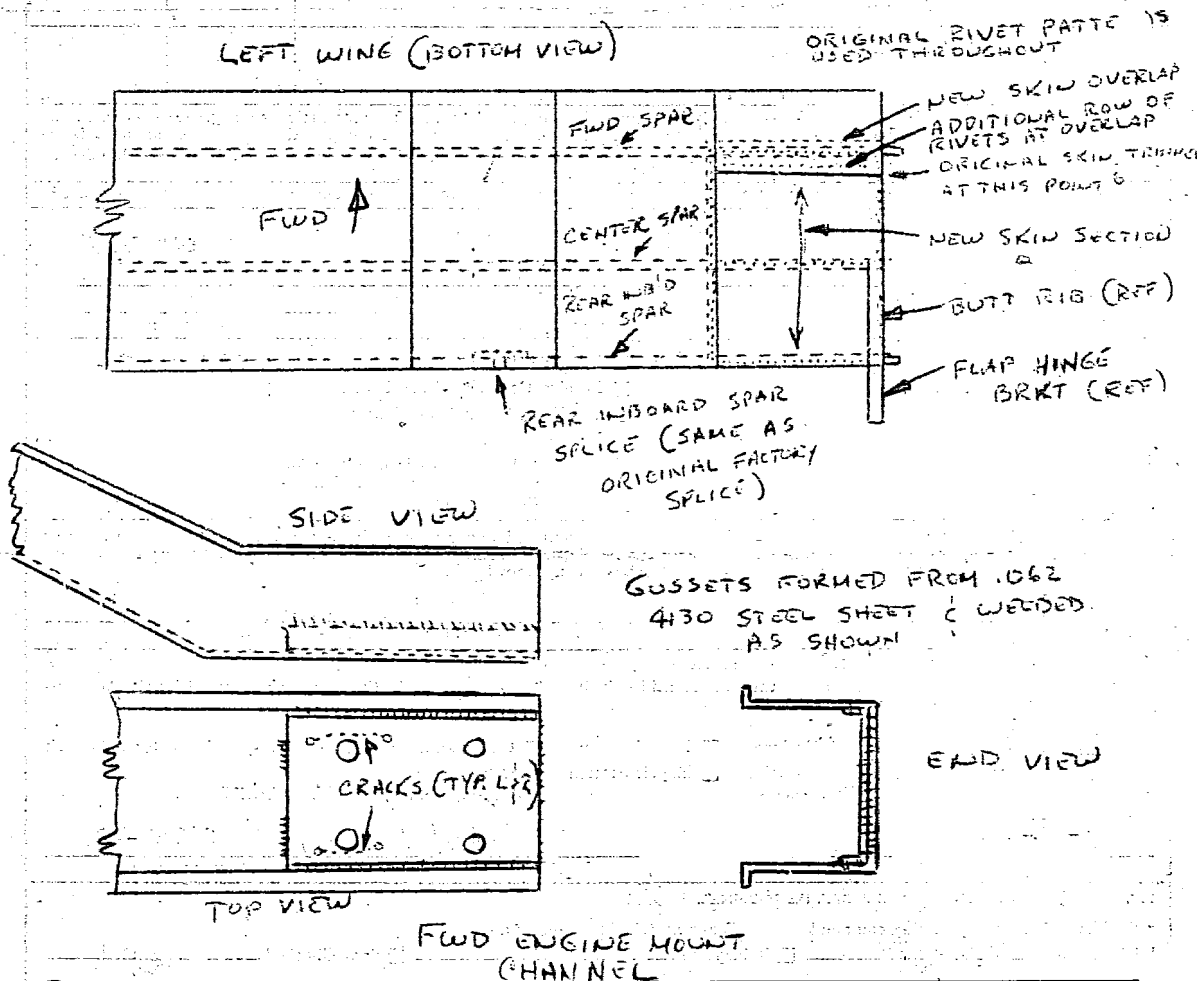 LEFT WING (BOTTOM VIEW)
ORIGINAL RIVET PATTE IS
USED THROUGHOUT
NEW SKIN OVERLAP
ADDITIONAL ROW OF
RIVETS AT OVERLAP
ORIGINAL SKIN TRIMMED
AT THIS POINT
FWD SPAR
FWD
CENTER SPAR
NEW SKIN SECTION
REAR INB'D
SPAR
BUTT RIB (REF)
FLAP HINGE
BRKT (REF)
REAR INBOARD SPAR
SPLICE (SAME AS
ORIGINAL FACTORY
SPLICE)
SIDE VIEW
GUSSETS FORMED FROM .062
4130 STEEL SHEET & WELDED
AS SHOWN
CRACKS (TYP. L&R)
END VIEW
TOP VIEW
FWD ENGINE MOUNT
CHANNEL